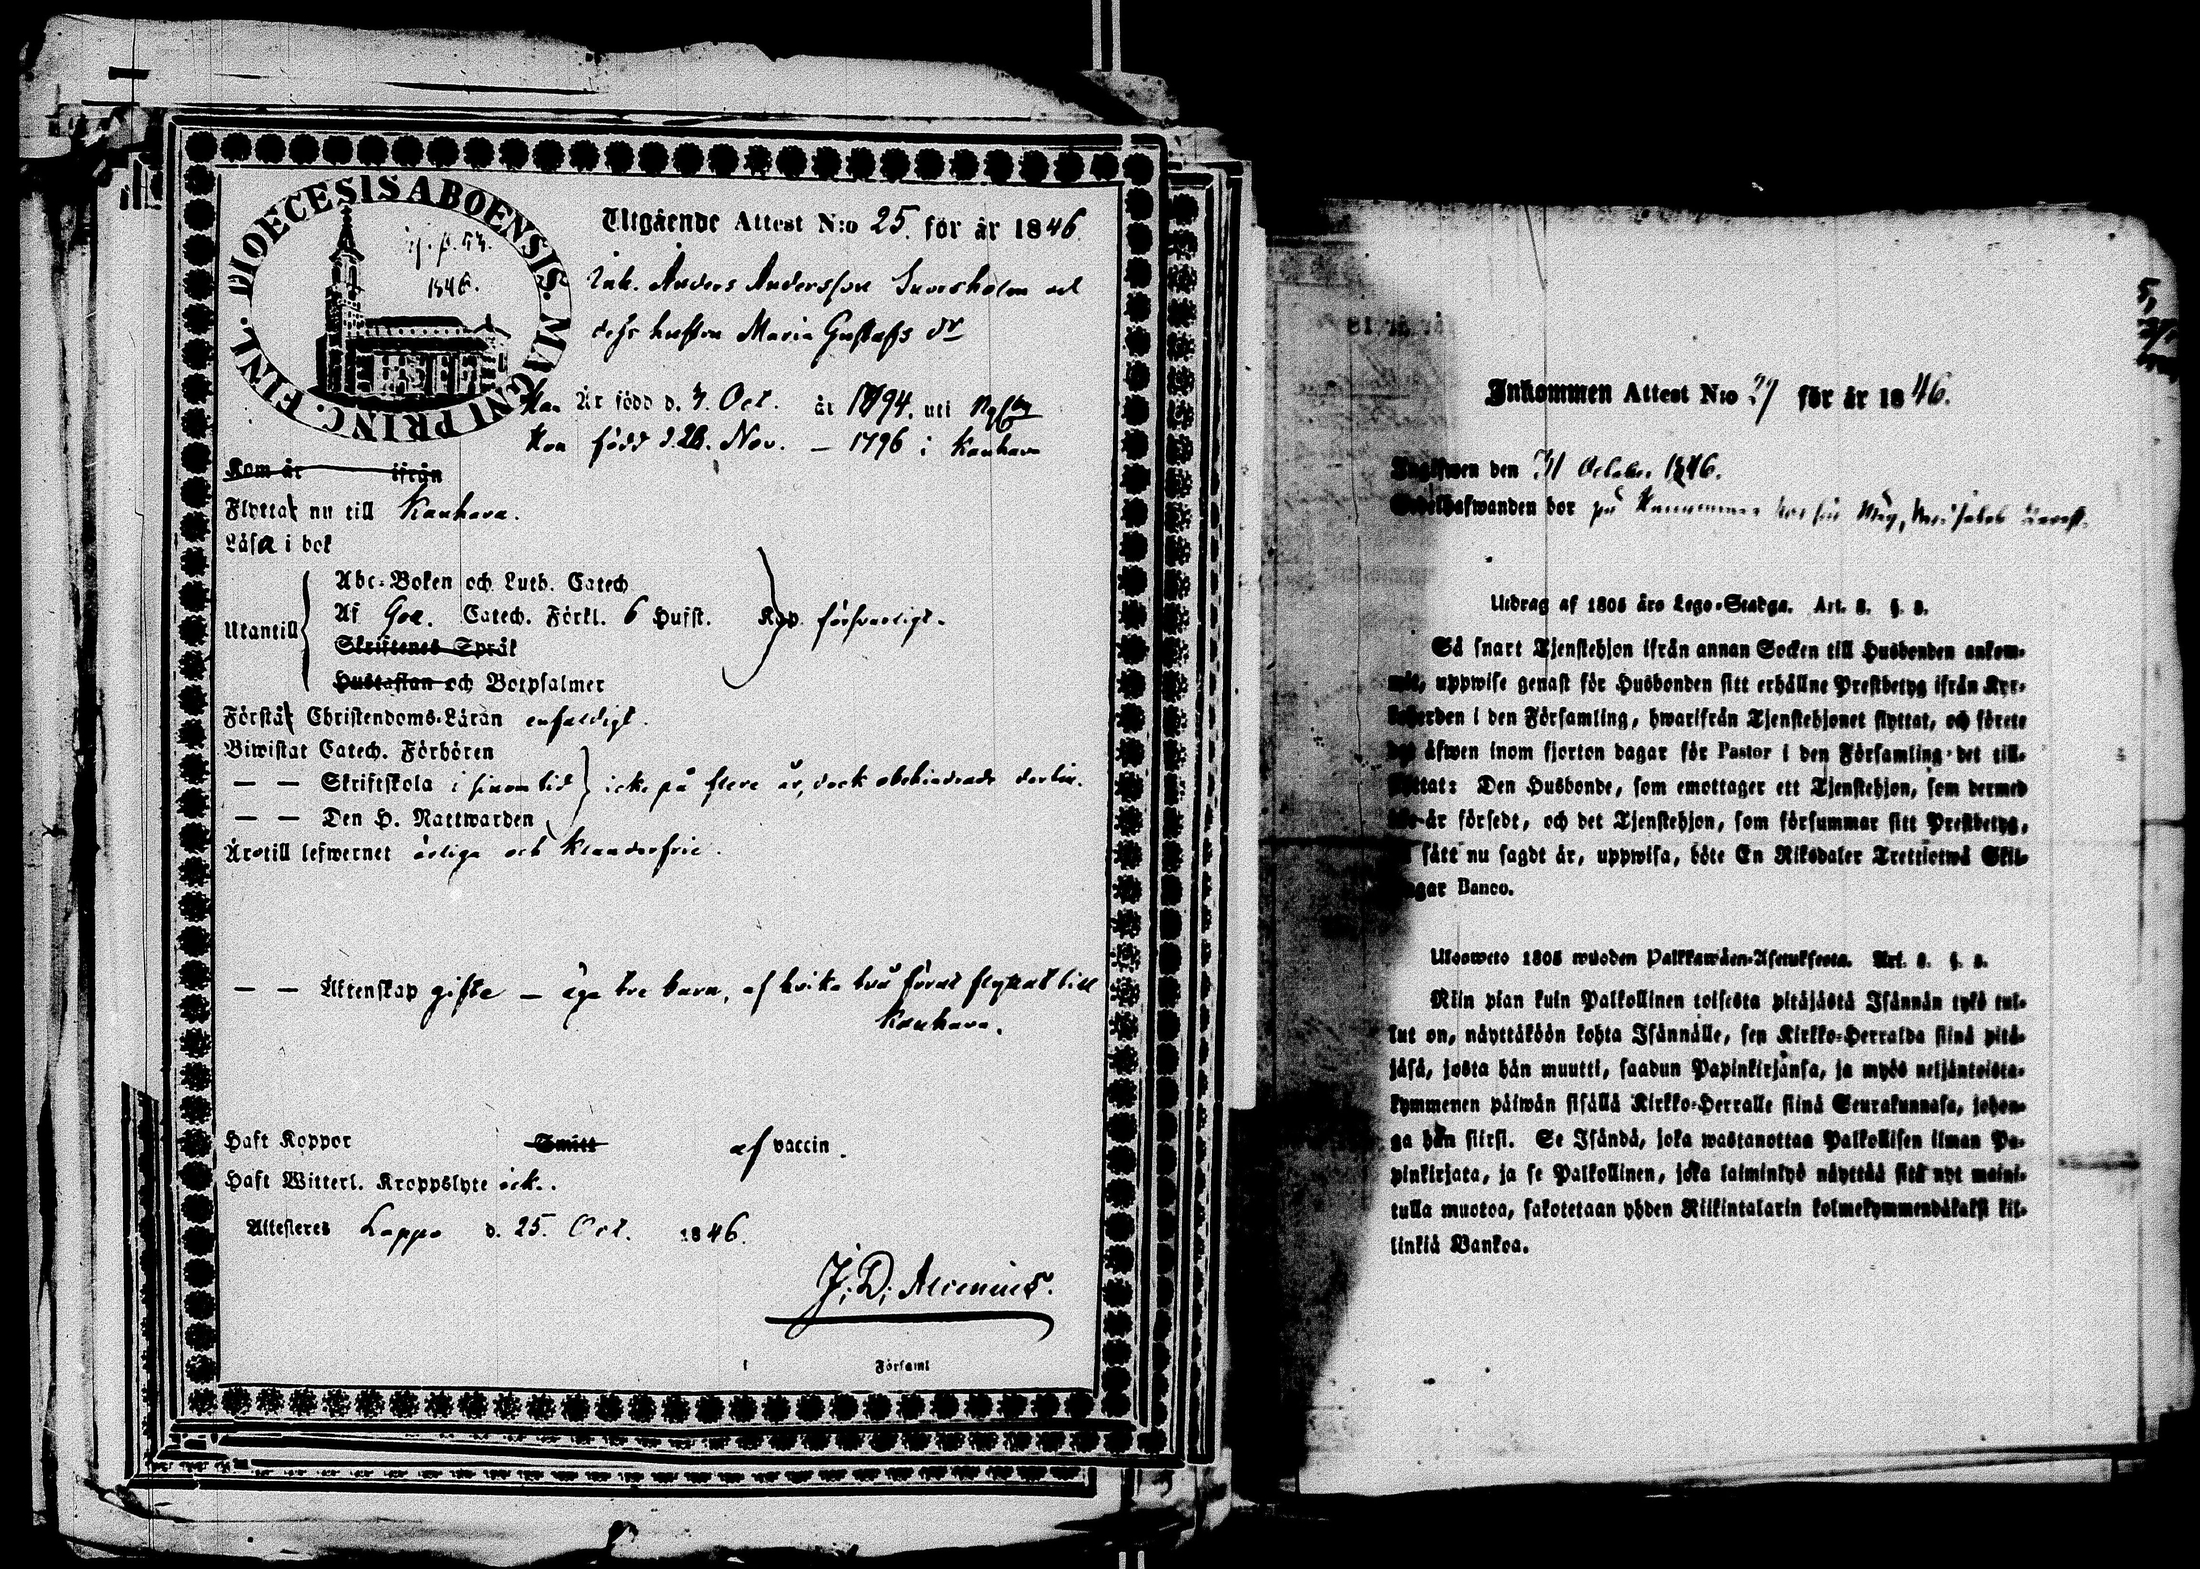 DIOECESIS ABOENSIS. MAGNI PRINC. FINL.
1846.
Utgående Attest N:o 25. för år 1846.
Inh. Anders Andersson och
dess hustru Maria Gustafs dr
Han Är född d. 4. Oct. år 1794. uti
Hon född d. 28. Nov. — 1796 i Kauhava
Kom år ifrån
Flyttar nu till Kauhava.
Läsa i bok
Utantill
Abc-Boken och Luth. Catech
Af Catech. Förkl. 6 Hufst. Kap. försvarligt.
Skriftenes Språk
Hustaflan och Botpsalmer
Förstår Christendoms-Läran enfaldigt.
Biwistat Catech. Förhören
— — Skriftskola i sinom tid icke på flere år, dock obehindrade dertill.
— — Den H. Nattwarden
Äro till lefwernet ärliga och klanderfrie.
— — Äktenskap gifte — äga tre barn, af hvilka två förut flyttat till
Kauhava.
Haft Koppor Smitt af vaccin.
Haft Witterl. Kroppslyte ick.
Attesteres Lappo d. 25. Oct. 1846.
J. D. Alcenius.
i Församl
Inkommen Attest N:o 27 för år 1846.
Ingifwen den 31 October 1846.
Bedelhafwanden bor på hos sin Måg,
Utdrag af 1805 års Lego-Stadga. Art. 8. §. 8.
Så snart Tjenstehjon ifrån annan Socken till Husbonden ankom-
mit, uppwise genast för Husbonden sitt erhållne Prestbetyg ifrån Kyr-
koherden i den Församling, hwarifrån Tjenstehjonet flyttat, och förete
det äfwen inom fjorton dagar för Pastor i den Församling det till-
flyttat: Den Husbonde, som emottager ett Tjenstehjon, som dermed
icke är försedt, och det Tjenstehjon, som försummar sitt Prestbetyg,
på sätt nu sagdt är, uppwisa, böte En Riksdaler Trettiotwå Skil-
lingar Banco.
Ulosweto 1805 wuoden Palkkawäen-Asetuksesta. Art. 8. §. 8.
Niin pian kuin Palkollinen toisesta pitäjästä Isännän tykö tul-
lut on, näyttäköön kohta Isännälle, sen Kirkko-Herralda siinä pitä-
jäsä, josta hän muutti, saadun Papinkirjansa, ja myös neljäntoista-
kymmenen päiwän sisällä Kirkko-Herralle siinä Seurakunnasa, johon-
ga hän siirsi. Se Isändä, joka wastanottaa Palkollisen ilman Pa-
pinkirjata, ja se Palkollinen, joka laiminlyö näyttää sitä nyt maini-
tulla muotoa, sakotetaan yhden Riikintalarin kolmekymmendäkaksi kil-
linkiä Bankoa.